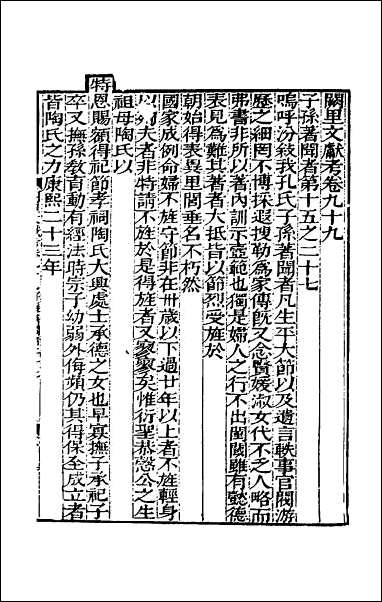 闕里文獻考卷九十九
子孫著聞者第十五之二十七
嗚呼汾敘我孔氏子孫著聞者凡生平大節以及遺言軼事官閥游
歷之細罔不博採遐搜勒為家傳旣又念賢媛淑女代不乏人略而
弗書非所以著內訓示壼範也獨是婦人之行不出閨閫雖有懿德
表見為難其著者大抵皆以節烈受旌於
朝始得表異里閭垂名不朽然
國家成例命婦不旌守節非在卅歲以下過廿年以上者不旌輕身
以 夫者非特請不旌於是得旌者又寥寥矣惟衍聖恭愨公之生
祖母陶氏以
特恩賜額得祀節孝祠陶氏大興處士承德之女也早寡撫子承祀子
卒又撫孫教育動有經法時宗子幼弱外侮頻仍其得保全成立者
皆陶氏之力康熙二十三年